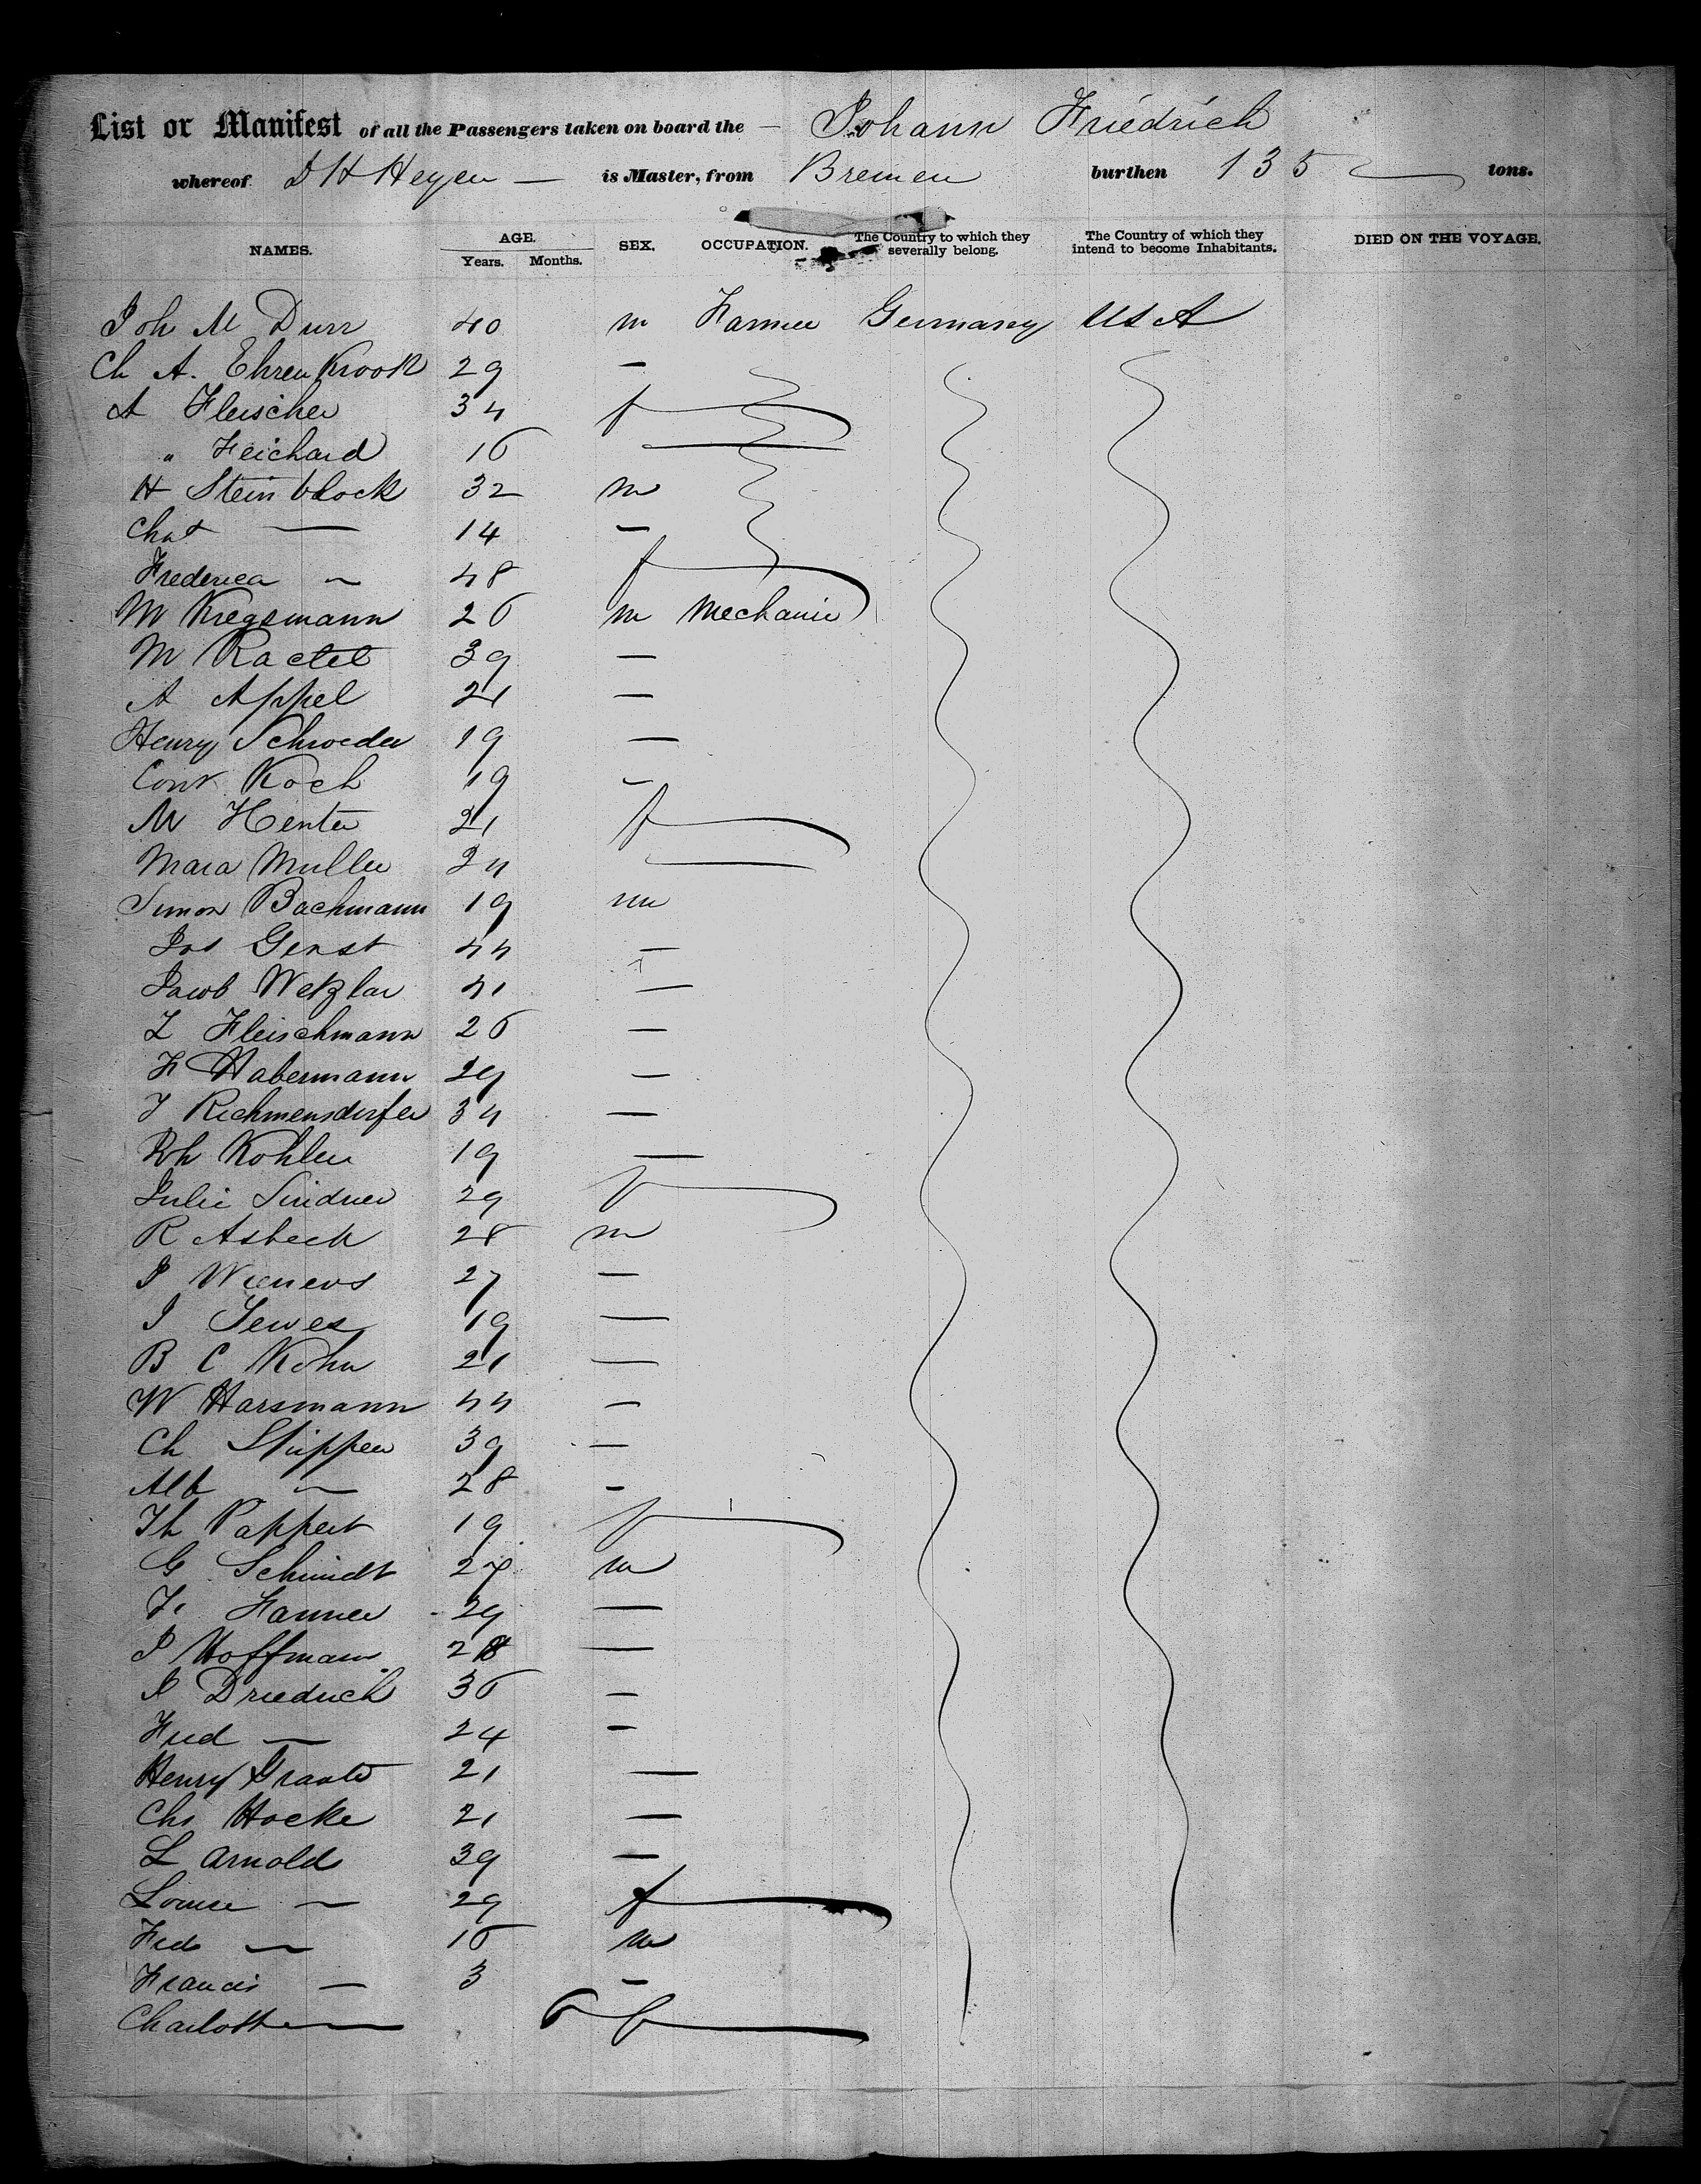 List or Manifest of all the Passengers taken on board the — Johann Friedrich
whereof D H Heyen — is Master, from Bremen burthen 135 tons.
NAMES. AGE. Years. Months. SEX. OCCUPATION. The Country to which they severally belong. The Country of which they intend to become Inhabitants. DIED ON THE VOYAGE.
Joh M Durr 40 m Farmer Germany USA
Ch A. Ehrenkrook 29 —
A Fleischer 34 f
" Feichard 16 —
H Steinblock 32 m
Chat — 14 —
Frederica — 48 f
M Kregsmann 26 m Mechanic
M Ractel 39 —
A Appel 21 —
Henry Schroeder 19 —
Conr Koch 19 —
M Henter 21 f
Maria Muller 24 —
Simon Bachmann 19 m
Jos Genst 44 —
Jacob Wetzlar 41 —
L Fleischmann 26 —
F Habermann 29 —
J Richmensdorfer 34 —
Joh Kohler 19 —
Julie Lindner 29 f
R Asbeck 28 m
J Wieners 27 —
J Tewes 19 —
B C Kohn 21 —
W Harsmann 44 —
Ch Stupper 39 —
Alb — 28 —
Th Pappert 19 f
G Schmidt 27 m
F. Farmer 29 —
J Hoffmann 28 —
J Driedrich 36 —
Fred — 24 —
Henry Graate 21 —
Chs Hocke 21 —
L Arnold 39 —
Louise — 29 f
Fred — 16 m
Francis — 3 —
Charlotte — 6 f